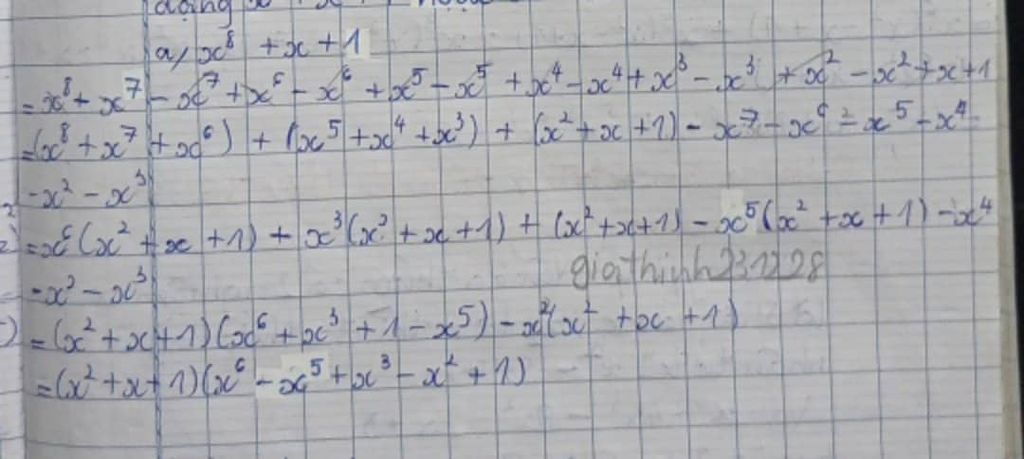 a, x⁸ + x + 1
= x⁸ + x⁷ - x⁷ + x⁶ - x⁶ + x⁵ - x⁵ + x⁴ - x⁴ + x³ - x³ + x² - x² + x + 1
= (x⁸ + x⁷ + x⁶) + (x⁵ + x⁴ + x³) + (x² + x + 1) - x⁷ - x⁶ - x⁵ - x⁴
- x² - x³
= x⁶(x² + x + 1) + x³(x² + x + 1) + (x² + x + 1) - x⁵(x² + x + 1) - x⁴
- x² - x³
giathinh231228
= (x² + x + 1)(x⁶ + x³ + 1 - x⁵) - x²(x² + x + 1)
= (x² + x + 1)(x⁶ - x⁵ + x³ - x² + 1)